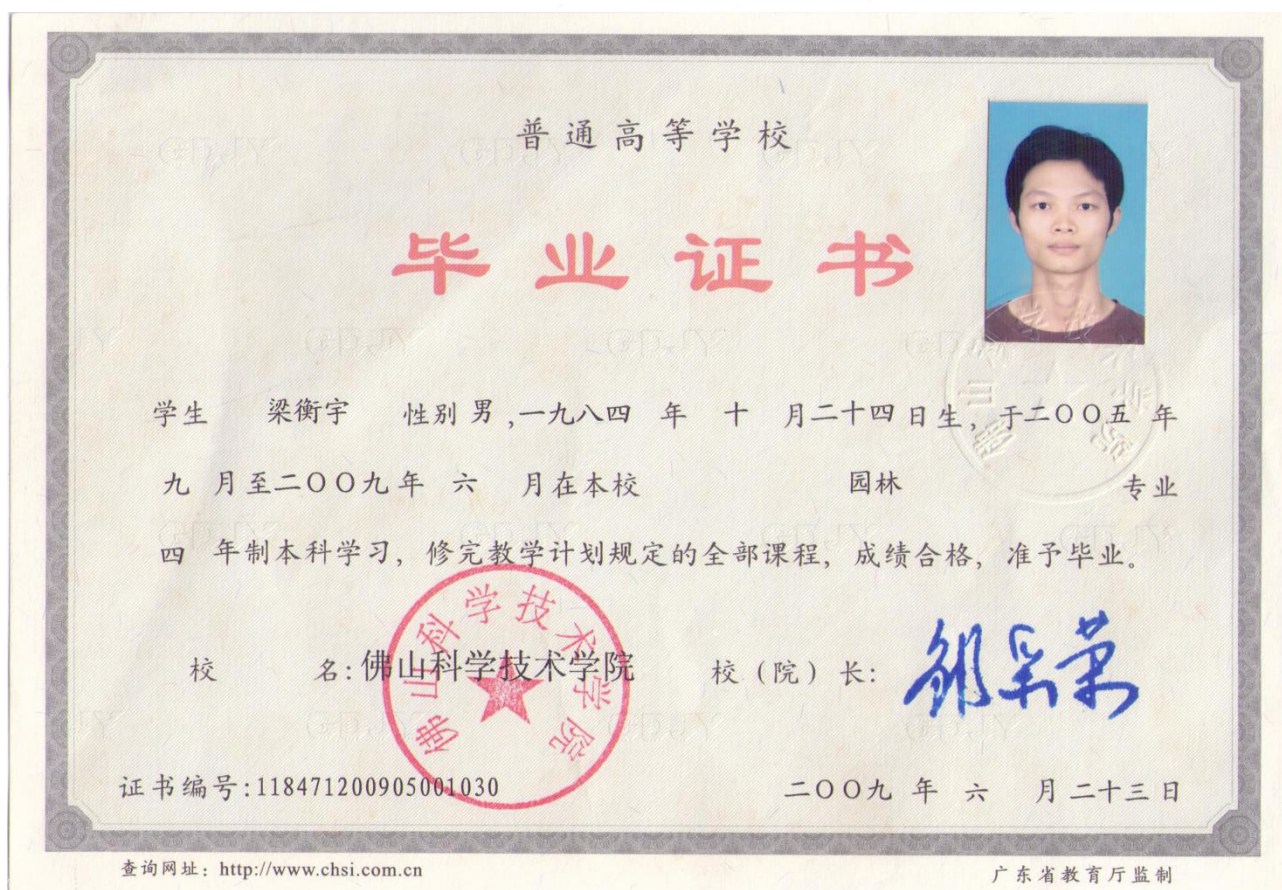 普通高等学校
毕业证书
学生 梁衡宇 性别 男,一九八四 年 十 月二十四日生,于二〇〇五 年
九 月至二〇〇九年 六 月在本校 园林 专业
四 年制本科学习,修完教学计划规定的全部课程,成绩合格,准予毕业。
校 名:佛山科学技术学院 校(院)长:
佛山科学技术学院
证书编号:118471200905001030 二〇〇九 年 六 月 二十三日
查询网址:http://www.chsi.com.cn 广东省教育厅监制